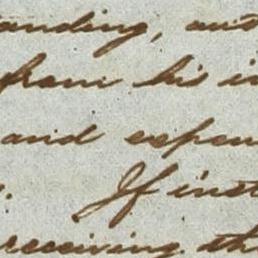 anding, and
from his in
and expen
. If inst
receiving th